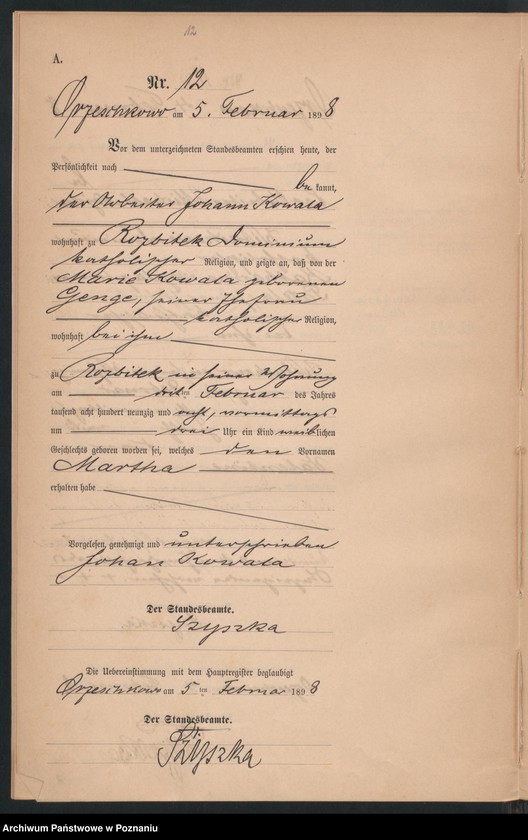 12
A.
Nr. 12
Orzeschkowo am 5. Februar 1898
Vor dem unterzeichneten Standesbeamten erschien heute, der
Persönlichkeit nach
be kannt,
der Arbeiter Johann Kowala
wohnhaft zu Rozbitek Dominium
katholischer Religion, und zeigte an, daß von der
Marie Kowala geborenen
Genge, seiner Ehefrau
katholischer Religion,
wohnhaft bei ihm
zu Rozbitek in seiner Wohnung
am dritten Februar des Jahres
tausend acht hundert neunzig und acht, vormittags
um drei Uhr ein Kind weiblichen
Geschlechts geboren worden sei, welches den Vornamen
Martha
erhalten habe
Vorgelesen, genehmigt und unterschrieben
Johan Kowala
Der Standesbeamte.
Szyszka
Die Uebereinstimmung mit dem Hauptregister beglaubigt
Orzeschkowo am 5 ten Februar 1898
Der Standesbeamte.
Szyszka
Archiwum Państwowe w Poznaniu